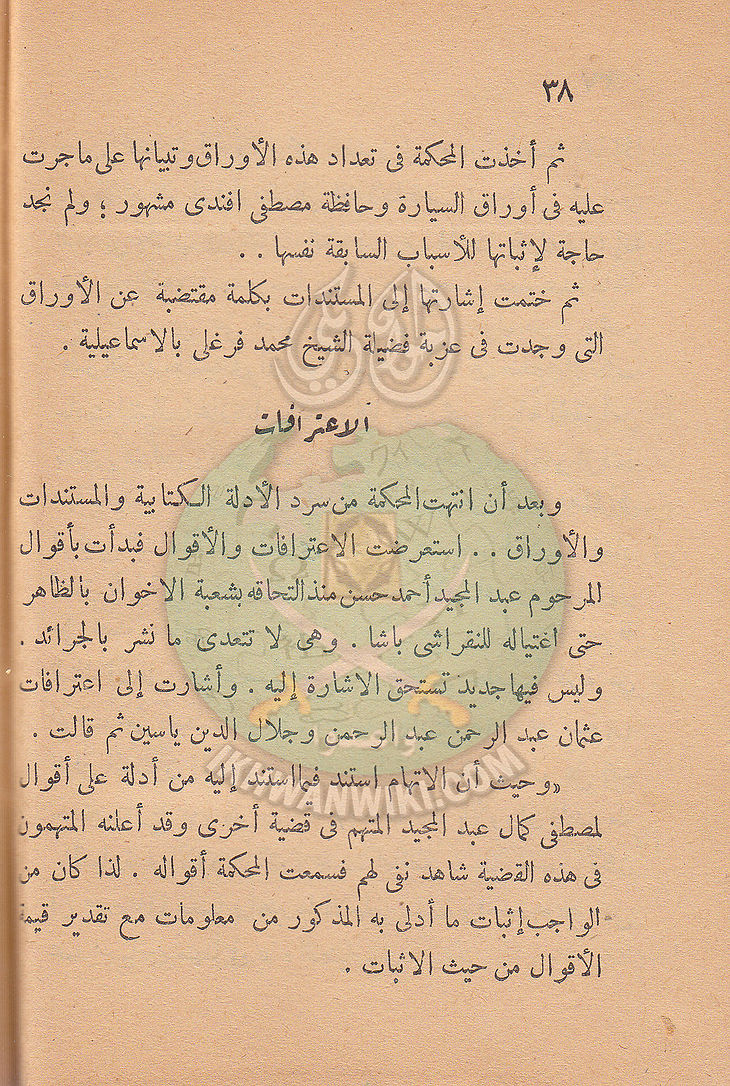 ٣٨
ثم أخذت المحكمة فى تعداد هذه الأوراق وتبيانها على ماجرت
عليه فى أوراق السيارة وحافظة مصطفى افندى مشهور ؛ ولم نجد
حاجة لإثباتها للأسباب السابقة نفسها . .
ثم ختمت إشارتها إلى المستندات بكلمة مقتضبة عن الأوراق
التى وجدت فى عزبة فضيلة الشيخ محمد فرغلى بالاسماعيلية .
الاعترافات
وبعد أن انتهت المحكمة من سرد الأدلة الكتابية والمستندات
والأوراق . . استعرضت الاعترافات والأقوال فبدأت بأقوال
المرحوم عبد المجيد أحمد حسن منذ التحاقه بشعبة الاخوان بالظاهر
حتى اغتياله للنقراشى باشا . وهى لا تتعدى ما نشر بالجرائد .
وليس فيها جديد تستحق الاشارة إليه . وأشارت إلى اعترافات
عثمان عبد الرحمن عبد الرحمن وجلال الدين ياسين ثم قالت .
«وحيث أن الاتهام استند فيما استند إليه من أدلة على أقوال
لمصطفى كمال عبد المجيد المتهم فى قضية أخرى وقد أعلنه المتهمون
فى هذه القضية شاهد نفى لهم فسمعت المحكمة أقواله . لذا كان من
الواجب إثبات ما أدلى به المذكور من معلومات مع تقدير قيمة
الأقوال من حيث الاثبات .
IKHWANWIKI.COM